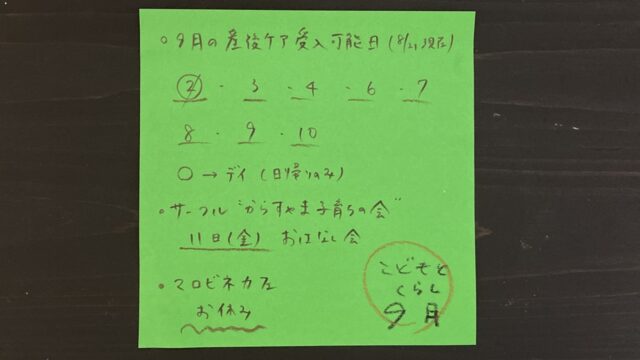 ○ 9月の産後ケア受入可能日 (8/21現在)
② ・ 3 ・ 4 ・ 6 ・ 7
8 ・ 9 ・ 10
○ → デイ (日帰りのみ)
・サークル "からすやま子育ちの会"
11日(金) おはなし会
・マロビネカフェ
お休み
こどもと
くらし
9月